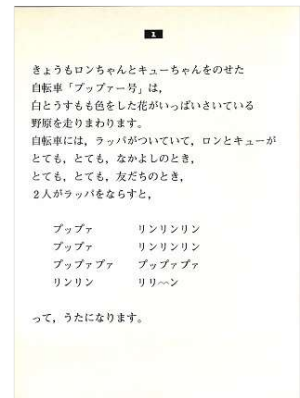 1
きょうもロンちゃんとキューちゃんをのせた
自転車「プップァー号」は，
白とうすもも色をした花がいっぱいさいている
野原を走りまわります。
自転車には，ラッパがついていて，ロンとキューが
とても，とても，なかよしのとき，
とても，とても，友だちのとき，
2人がラッパをならすと，
プップァ　　リンリンリン
プップァ　　リンリンリン
プップァプァ　　プップァプァ
リンリン　　リリ〜〜ン
って，うたになります。